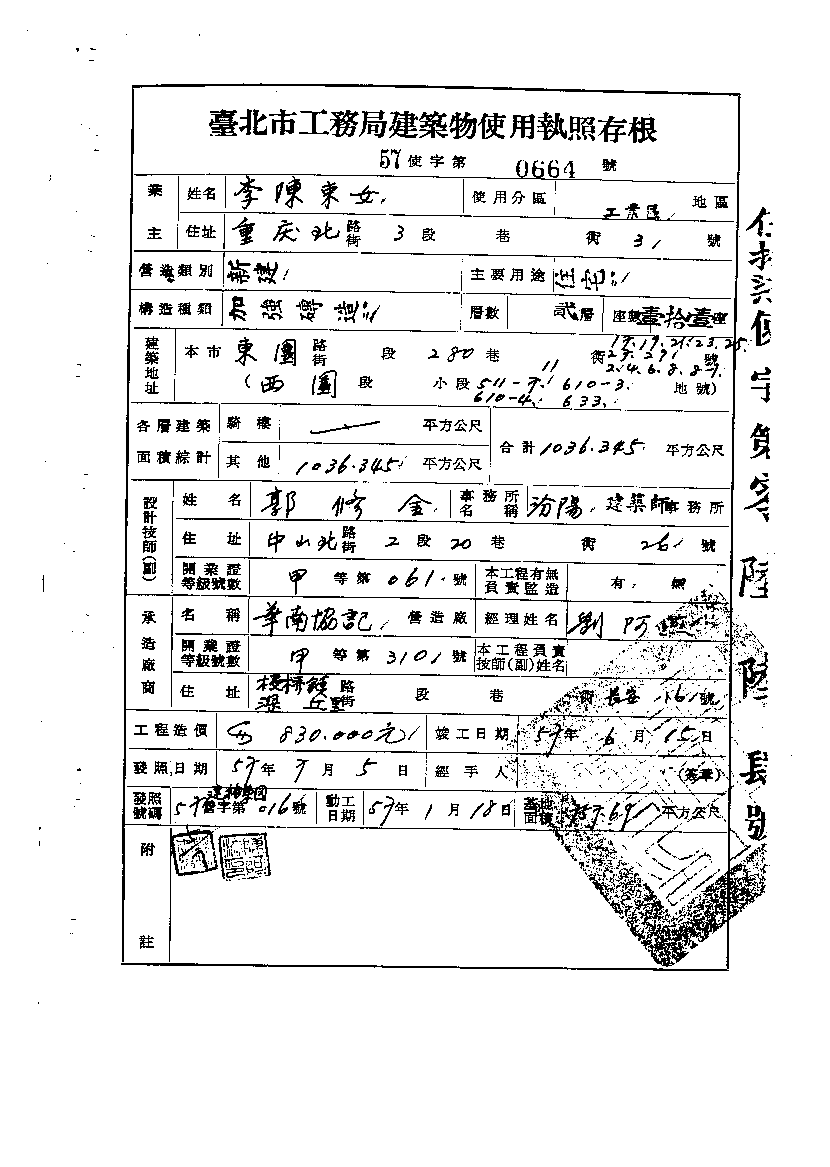 臺北市工務局建築物使用執照存根
57使字第 0664 號
業主 姓名 李陳東女 使用分區 工業區 地區
住址 重庆北 路街 3 段 巷 街 31 號
營造類別 新建 主要用途 住宅
構造種類 加強磚造 層數 貳層 座數 壹拾壹座
建築地址 本市 東園 路街 段 280 巷 11 街 17.19.21.23.25. 號
27.29 2.4.6.8.
(西園 段 小段 511-7. 610-3. 地號)
610-4. 633.
各層建築面積綜計 騎樓 平方公尺 合計 1036.345 平方公尺
其他 1036.345 平方公尺
設計技師(副) 姓名 郭修金 事務所名稱 汾陽建築師事務所
住址 中山北 路街 2 段 20 巷 街 26 號
開業證等級號數 甲 等第 061 號 本工程有無負責監造 有 無
承造廠商 名稱 華南協記 營造廠 經理姓名 劉阿
開業證等級號數 甲 等第 3101 號 本工程負責技師(副)姓名
住址 板桥鎮 路街 段 巷 街 長安 161 號
工程造價 830.000元 竣工日期 57年 6 月 15日
發照日期 57年 7 月 5 日 經手人 (簽章)
發照號碼 57 建 字第 016 號 動工日期 57年 1 月 18日 基地面積 757.69 平方公尺
附註
使字第零陸陸肆號